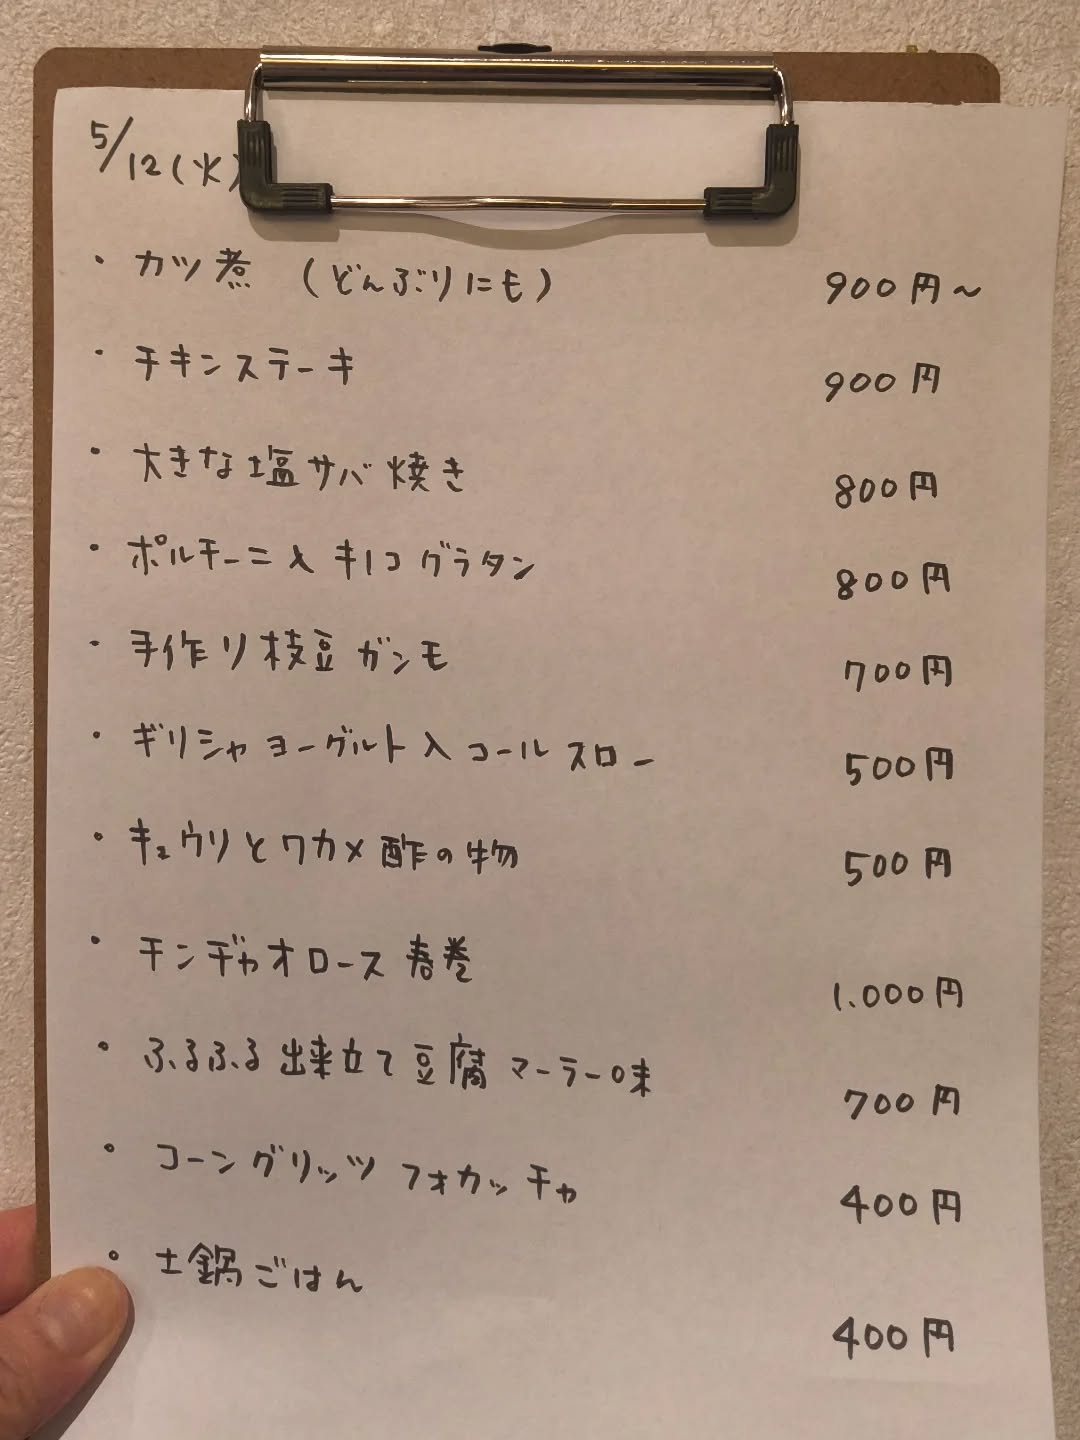 5/12(火)
・カツ煮 (どんぶりにも) 900円~
・チキンステーキ 900円
・大きな塩サバ焼き 800円
・ポルチーニ入キノコグラタン 800円
・手作り枝豆ガンモ 700円
・ギリシャヨーグルト入コールスロー 500円
・キュウリとワカメ酢の物 500円
・チンヂャオロース春巻 1.000円
・ふるふる出来立て豆腐マーラー味 700円
・コーングリッツフォカッチャ 400円
・土鍋ごはん 400円